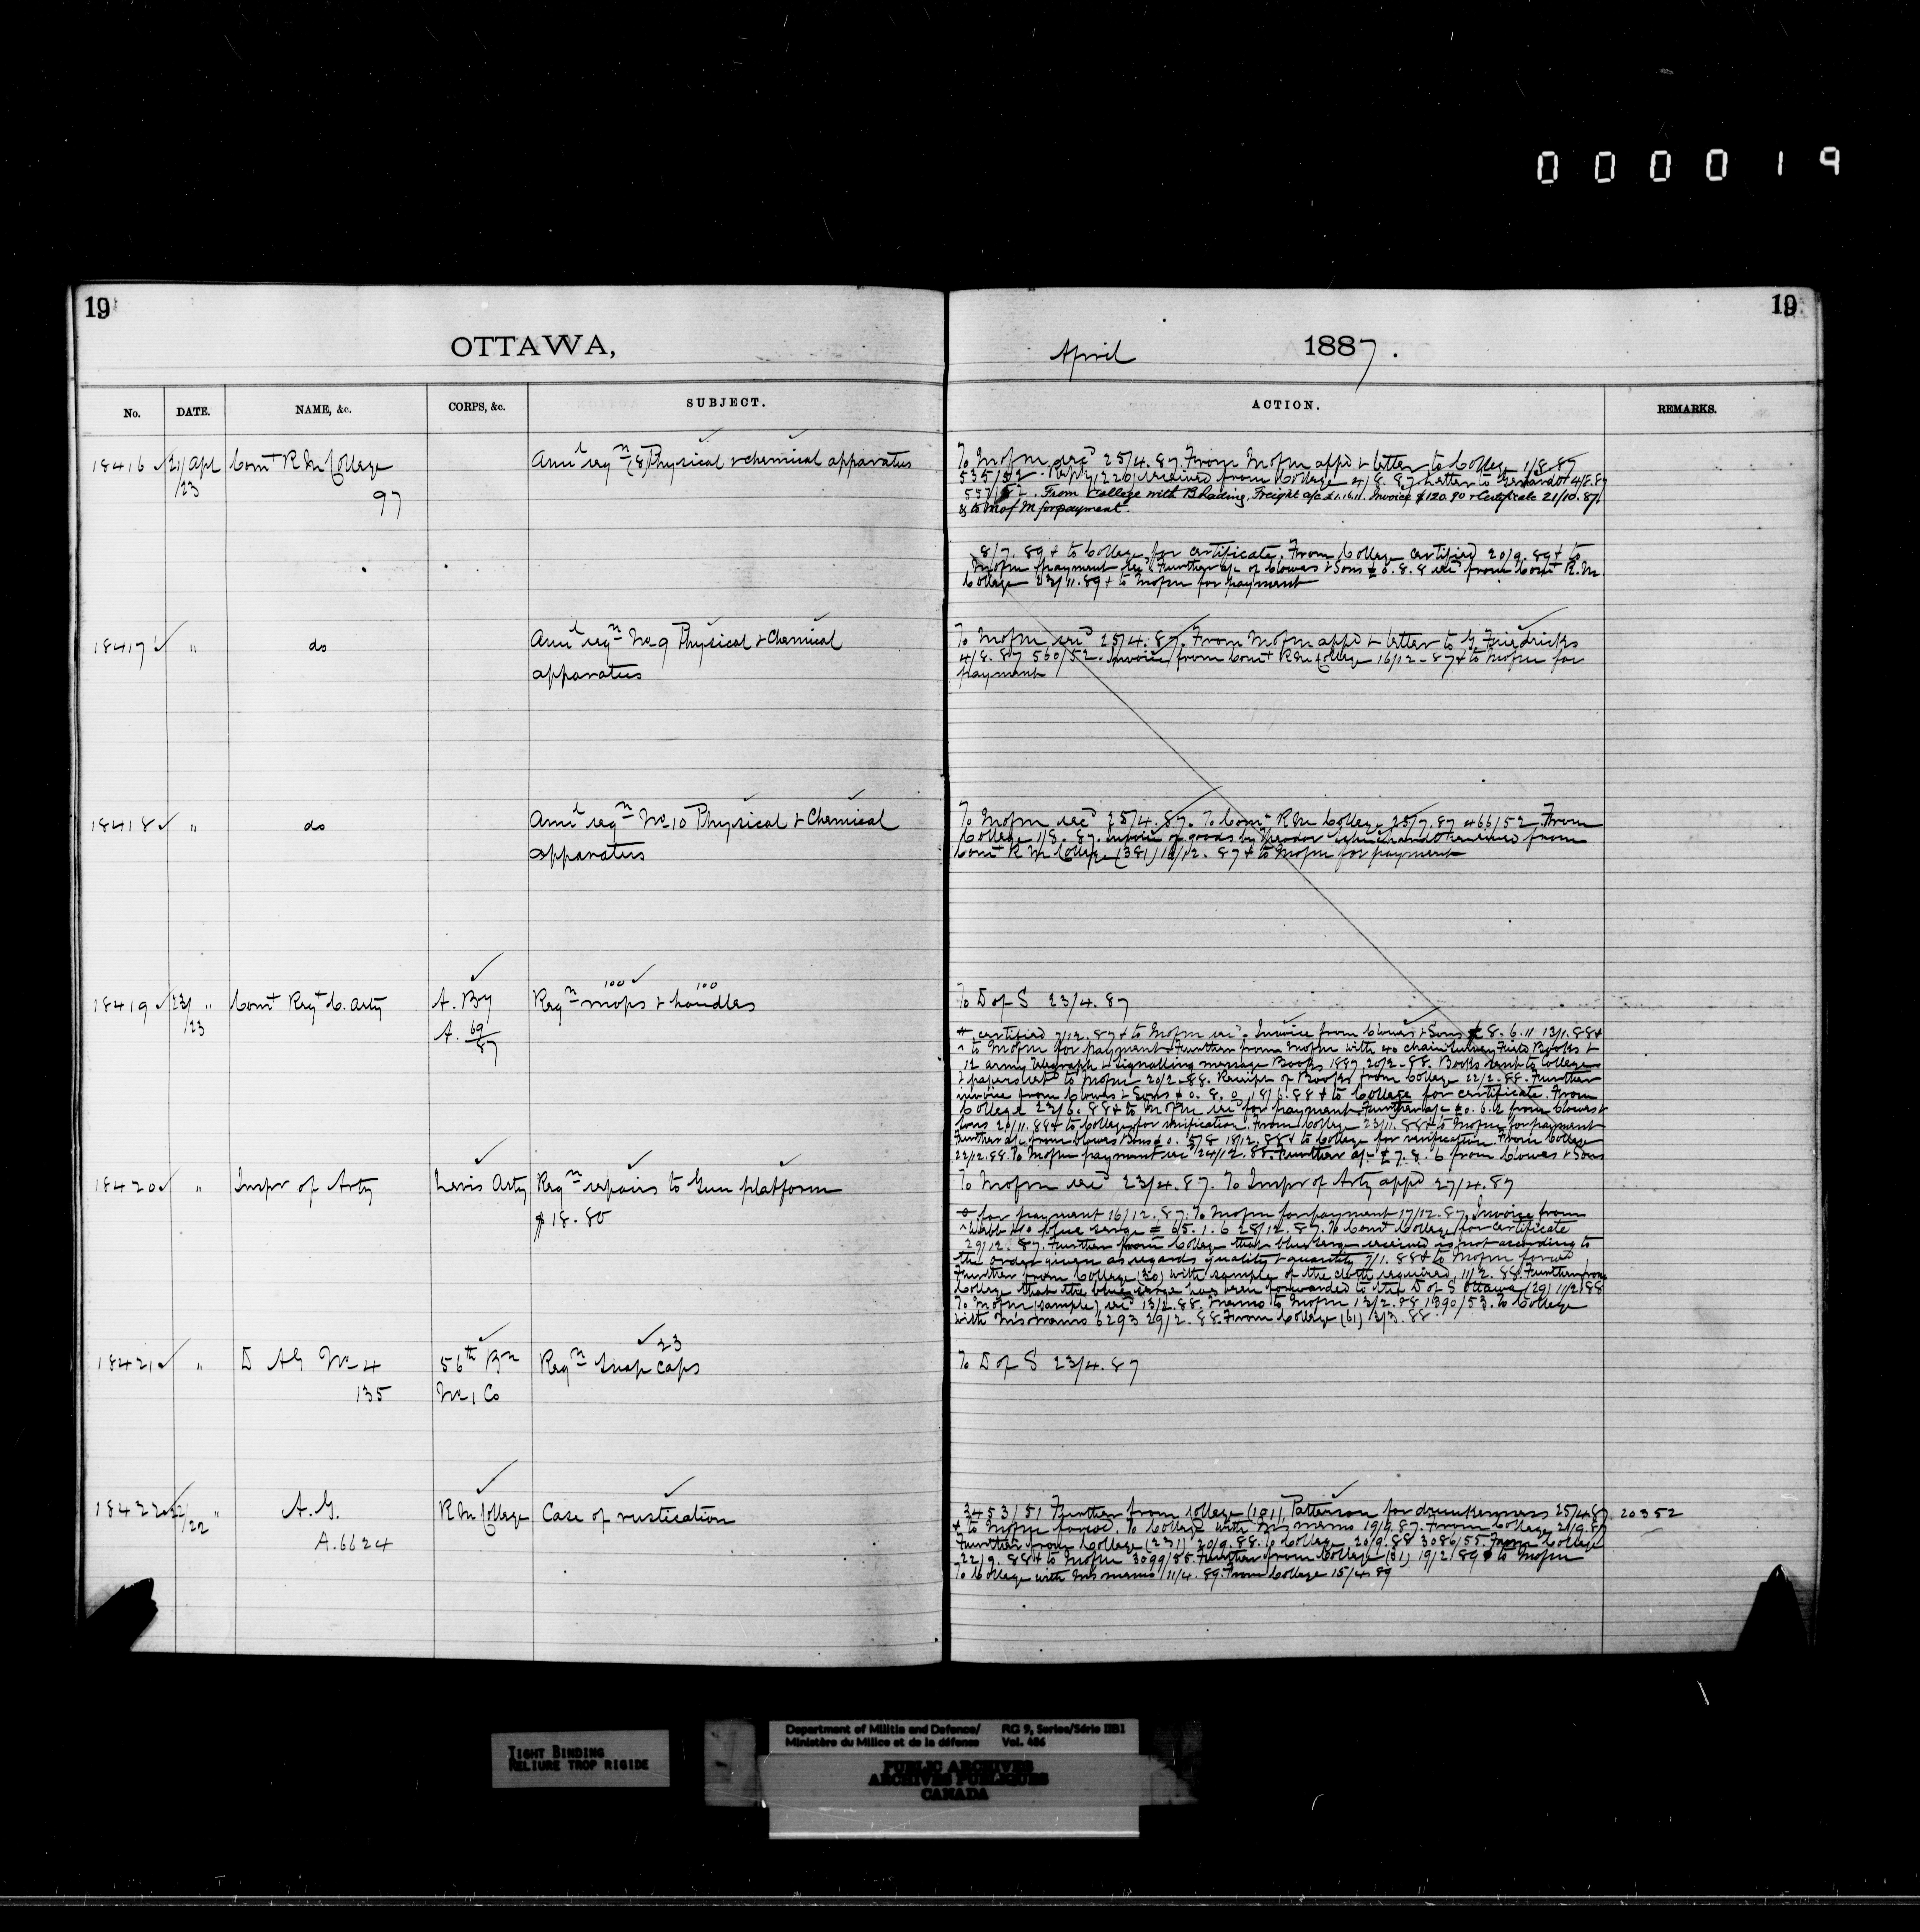 000019
19
19
OTTAWA,
April 1887.
No. DATE. NAME, &c. CORPS, &c. SUBJECT. ACTION. REMARKS.
18416 21/Apl Comt R M College Annl reqn (8) Physical & chemical apparatus
/23
97
To Mofm recd 25/4.87. From Mofm appd & letter to College 1/8.87
535/52. Reply (226) received from College 4/8.87 Letter to 4/8.87
557/52. From College with B Lading, Freight a/c £1.16.11. Invoice $120.90 & Certificate 21/10.87.
& to M of M for payment.
8/7.89 & to College for certificate. From College certified 20/9.89 & to
Mofm payment recd. Further a/c of Clowes & Sons £0.8.8 recd from Comt R.M.
College 23/11.89 & to Mofm for payment
18417 " do Annl reqn No 9 Physical & Chemical
apparatus
To Mofm recd 25/4.87. From Mofm appd & letter to G Friedricks
4/8.87 560/52. Invoice from Comt R M College 16/12-87 & to Mofm for
payment
18418 " do Annl reqn No 10 Physical & Chemical
apparatus
To Mofm recd 25/4.87. To Comt R M College 25/7.87 466/52. From
College 1/8.87. Invoice of goods by Theodor received from
Comt R M College (381) 16/12.87 & to Mofm for payment
18419 23/ " Comt Regt C. Arty A. By Reqn mops & handles
100 100
/23
A. 69/87
To D of S 23/4.87
certified 7/12.87 & to Mofm recd. Invoice from Clowes & Sons £8.6.11 13/1.88 &
to Mofm for payment. Further from Mofm with 40 chain Survey Field Books &
12 army telegraph & signalling message Books 1887 20/2-88. Books sent to College
& papers retd to Mofm 20/2-88. Receipt of Books from College 22/2-88. Further
invoice from Clowes & Sons £0.8.0 18/6.88 & to College for certificate. From
College 23/6.88 & to Mofm recd for payment. Further a/c £0.6.4 from Clowes &
Sons 20/11.88 & to College for verification. From College 23/11.88 & to Mofm for payment
Further a/c from Clowes & Sons £0.5/8 18/12.88 & to College for verification. From College
22/12.88. To Mofm payment recd 24/12.88. Further a/c £7.8.6 from Clowes & Sons
18420 " Inspr of Arty Levis Arty Reqn repairs to Gun platform
$18.80
To Mofm recd 23/4.87. To Inspr of Arty appd 27/4.87
for payment 16/12.87. To Mofm for payment 17/12.87. Invoice from
Webb & Co blue serge £65.1.6 28/12.87. To Comt College for certificate
29/12.87. Further from College that blue serge received is not according to
the order given as regards quality & quantity 7/1.88 & to Mofm forwd
Further from College (30) with sample of the cloth required 11/2.88. Further from
College that the blue serge has been forwarded to the D of S Ottawa (29) 11/2.88
To Mofm (sample) recd 13/2.88. Memo to Mofm 13/2.88 1390/53. To College
with Ms memo 6293 29/2.88. From College (61) 12/3.88
18421 " D AG No 4 56th Bn Reqn Snap caps
23
135 No 1 Co
To D of S 23/4.87
18422 22/ " A.G. R M College Case of rustication
/22
A.6624
3453/51 Further from College (101) Patterson for drunkenness 25/4.87 20352
& to Mofm forwd. To College with Ms memo 19/9.87. From College 21/9.87
Further from College (231) 20/9.88. To College 20/9.88 3086/55. From College
22/9.88 & to Mofm 3099/55. Further from College (31) 19/2/89 & to Mofm
To College with Ms memo 11/4.89. From College 15/4.89
TIGHT BINDING
RELIURE TROP RIGIDE
Department of Militia and Defence/ RG 9, Series/Série IIB1
Ministère du Milice et de la défense Vol. 486
PUBLIC ARCHIVES
ARCHIVES PUBLIQUES
CANADA